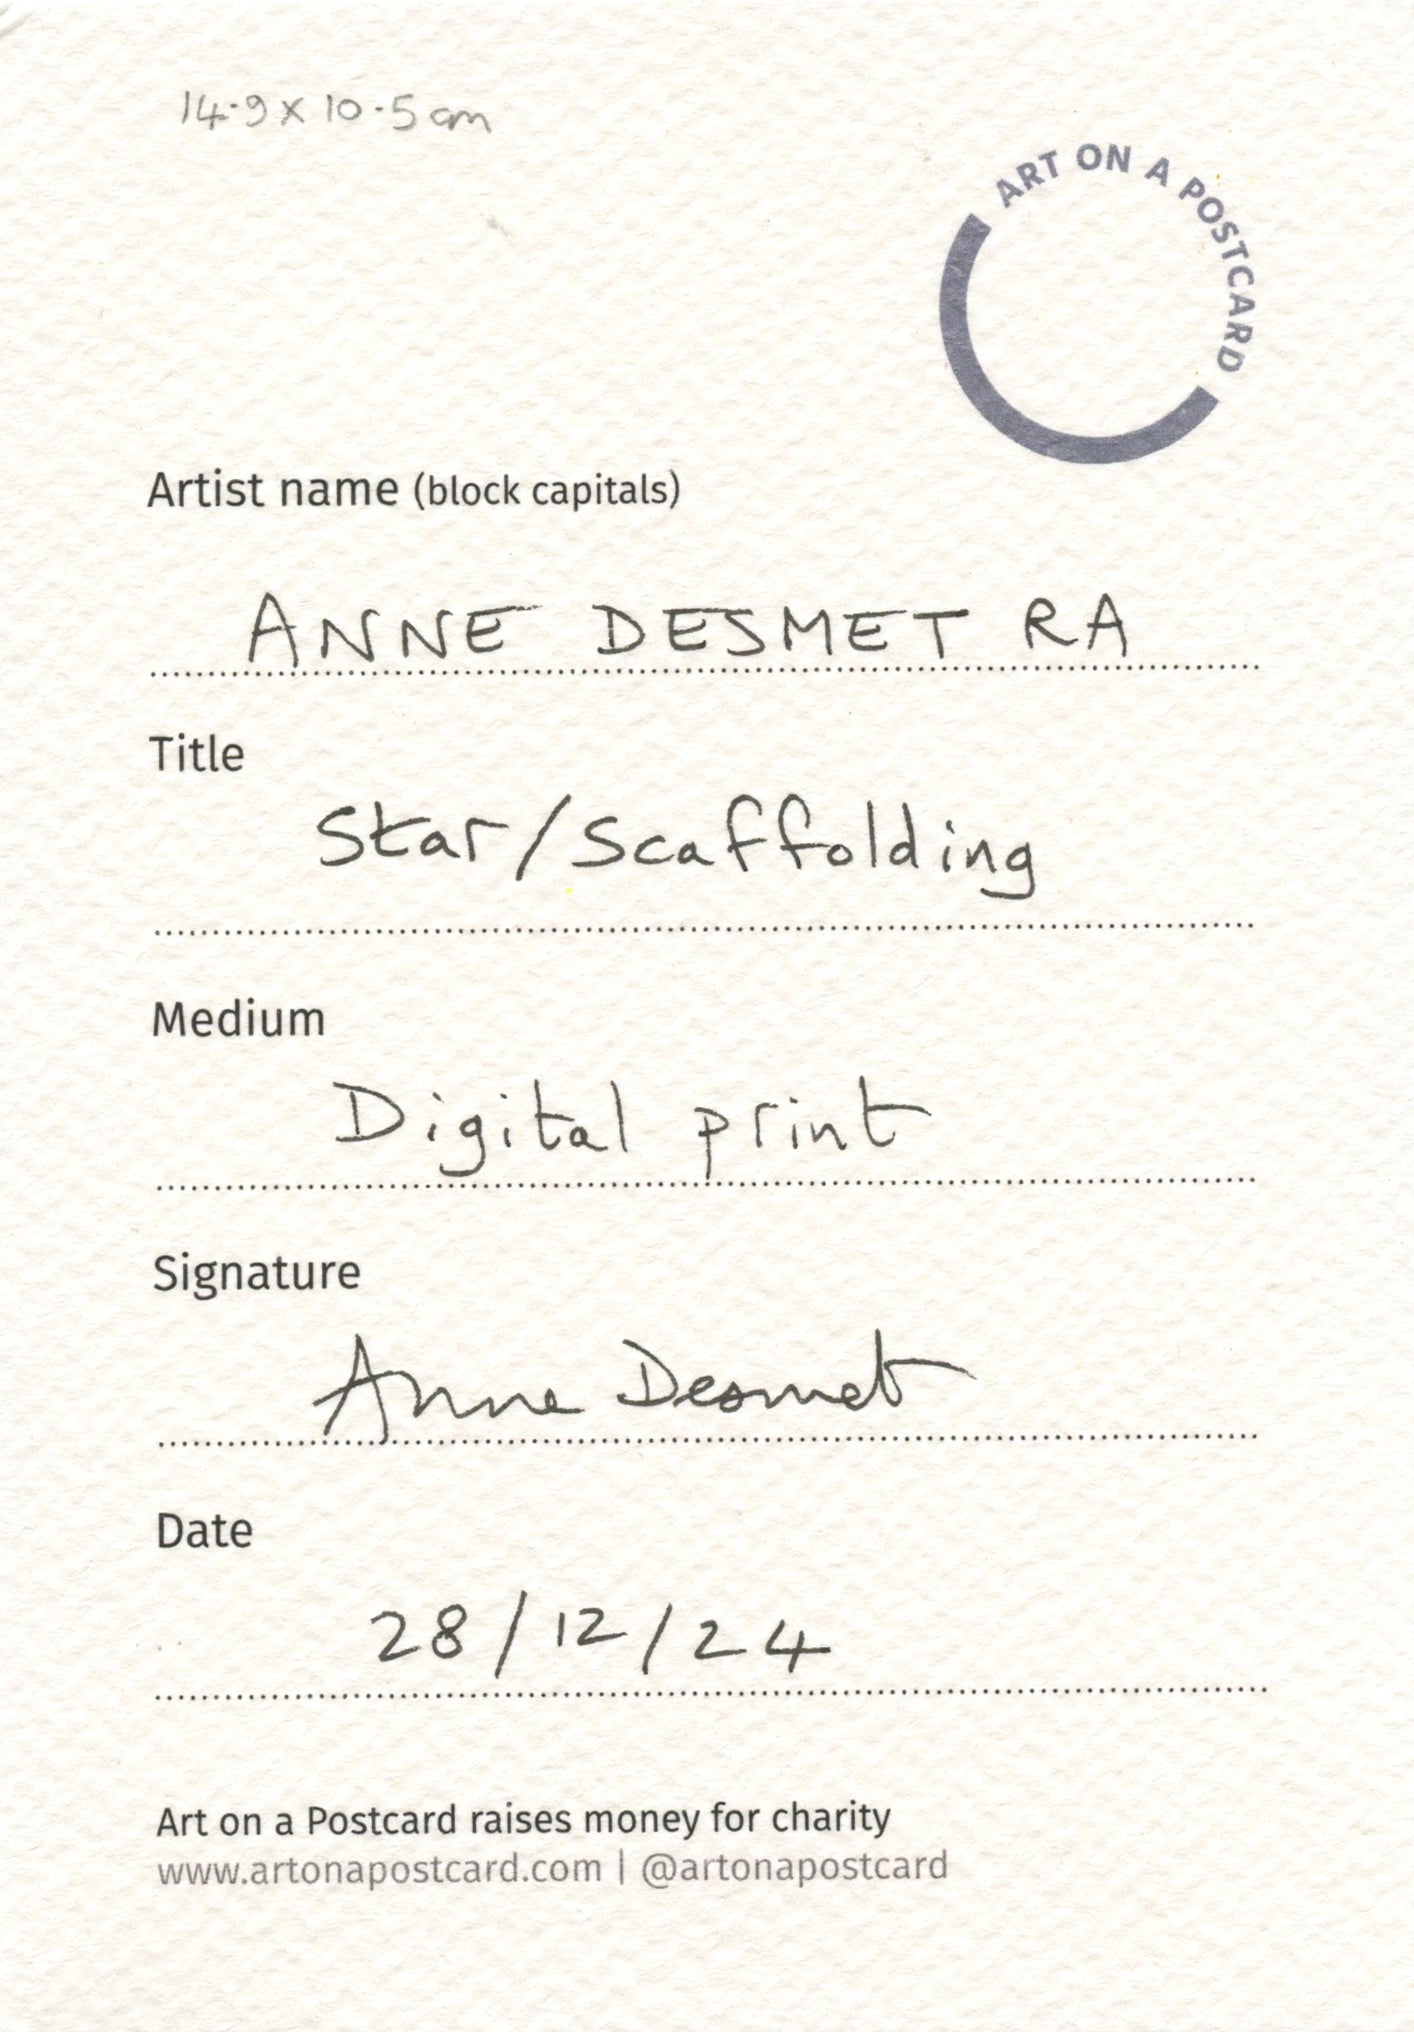 14.9 x 10.5 cm
ART ON A POSTCARD
Artist name (block capitals)
ANNE DESMET RA
Title
Star/Scaffolding
Medium
Digital print
Signature
Anne Desmet
Date
28/12/24
Art on a Postcard raises money for charity
www.artonapostcard.com | @artonapostcard